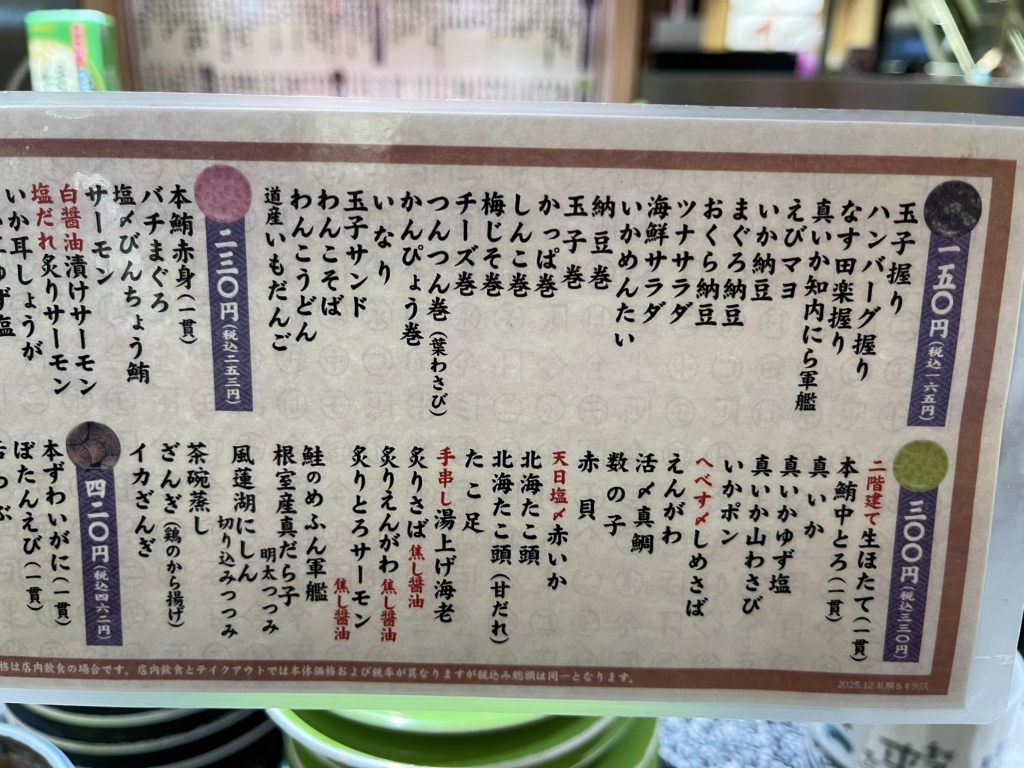 一五〇円(税込一六五円)
玉子握り
ハンバーグ握り
なす田楽握り
真いか知内にら軍艦
えびマヨ
いか納豆
まぐろ納豆
おくら納豆
ツナサラダ
海鮮サラダ
いかめんたい
納豆巻
玉子巻
かっぱ巻
しんこ巻
梅じそ巻
チーズ巻
つんつん巻(葉わさび)
かんぴょう巻
いなり
玉子サンド
わんこそば
わんこうどん
道産いもだんご
二三〇円(税込二五三円)
本鮪赤身(一貫)
バチまぐろ
塩〆びんちょう鮪
サーモン
白醤油漬けサーモン
塩だれ炙りサーモン
いか耳しょうが
ゆず塩
三〇〇円(税込三三〇円)
二階建て生ほたて(一貫)
本鮪中とろ(一貫)
真いか
真いかゆず塩
真いか山わさび
いかポン
へべす〆しめさば
えんがわ
活〆真鯛
数の子
赤貝
天日塩〆赤いか
北海たこ頭
北海たこ頭(甘だれ)
たこ足
手串し湯上げ海老
炙りさば焦し醤油
炙りえんがわ焦し醤油
炙りとろサーモン焦し醤油
鮭のめふん軍艦
根室産真だら子
明太つつみ
風蓮湖にしん
切り込みつつみ
茶碗蒸し
ざんぎ(鶏のから揚げ)
イカざんぎ
四二〇円(税込四六二円)
本ずわいがに(一貫)
ぼたんえび(一貫)
つぶ
格は店内飲食の場合です。店内飲食とテイクアウトでは本体価格および税率が異なりますが税込み総額は同一となります。
2025.12 札幌